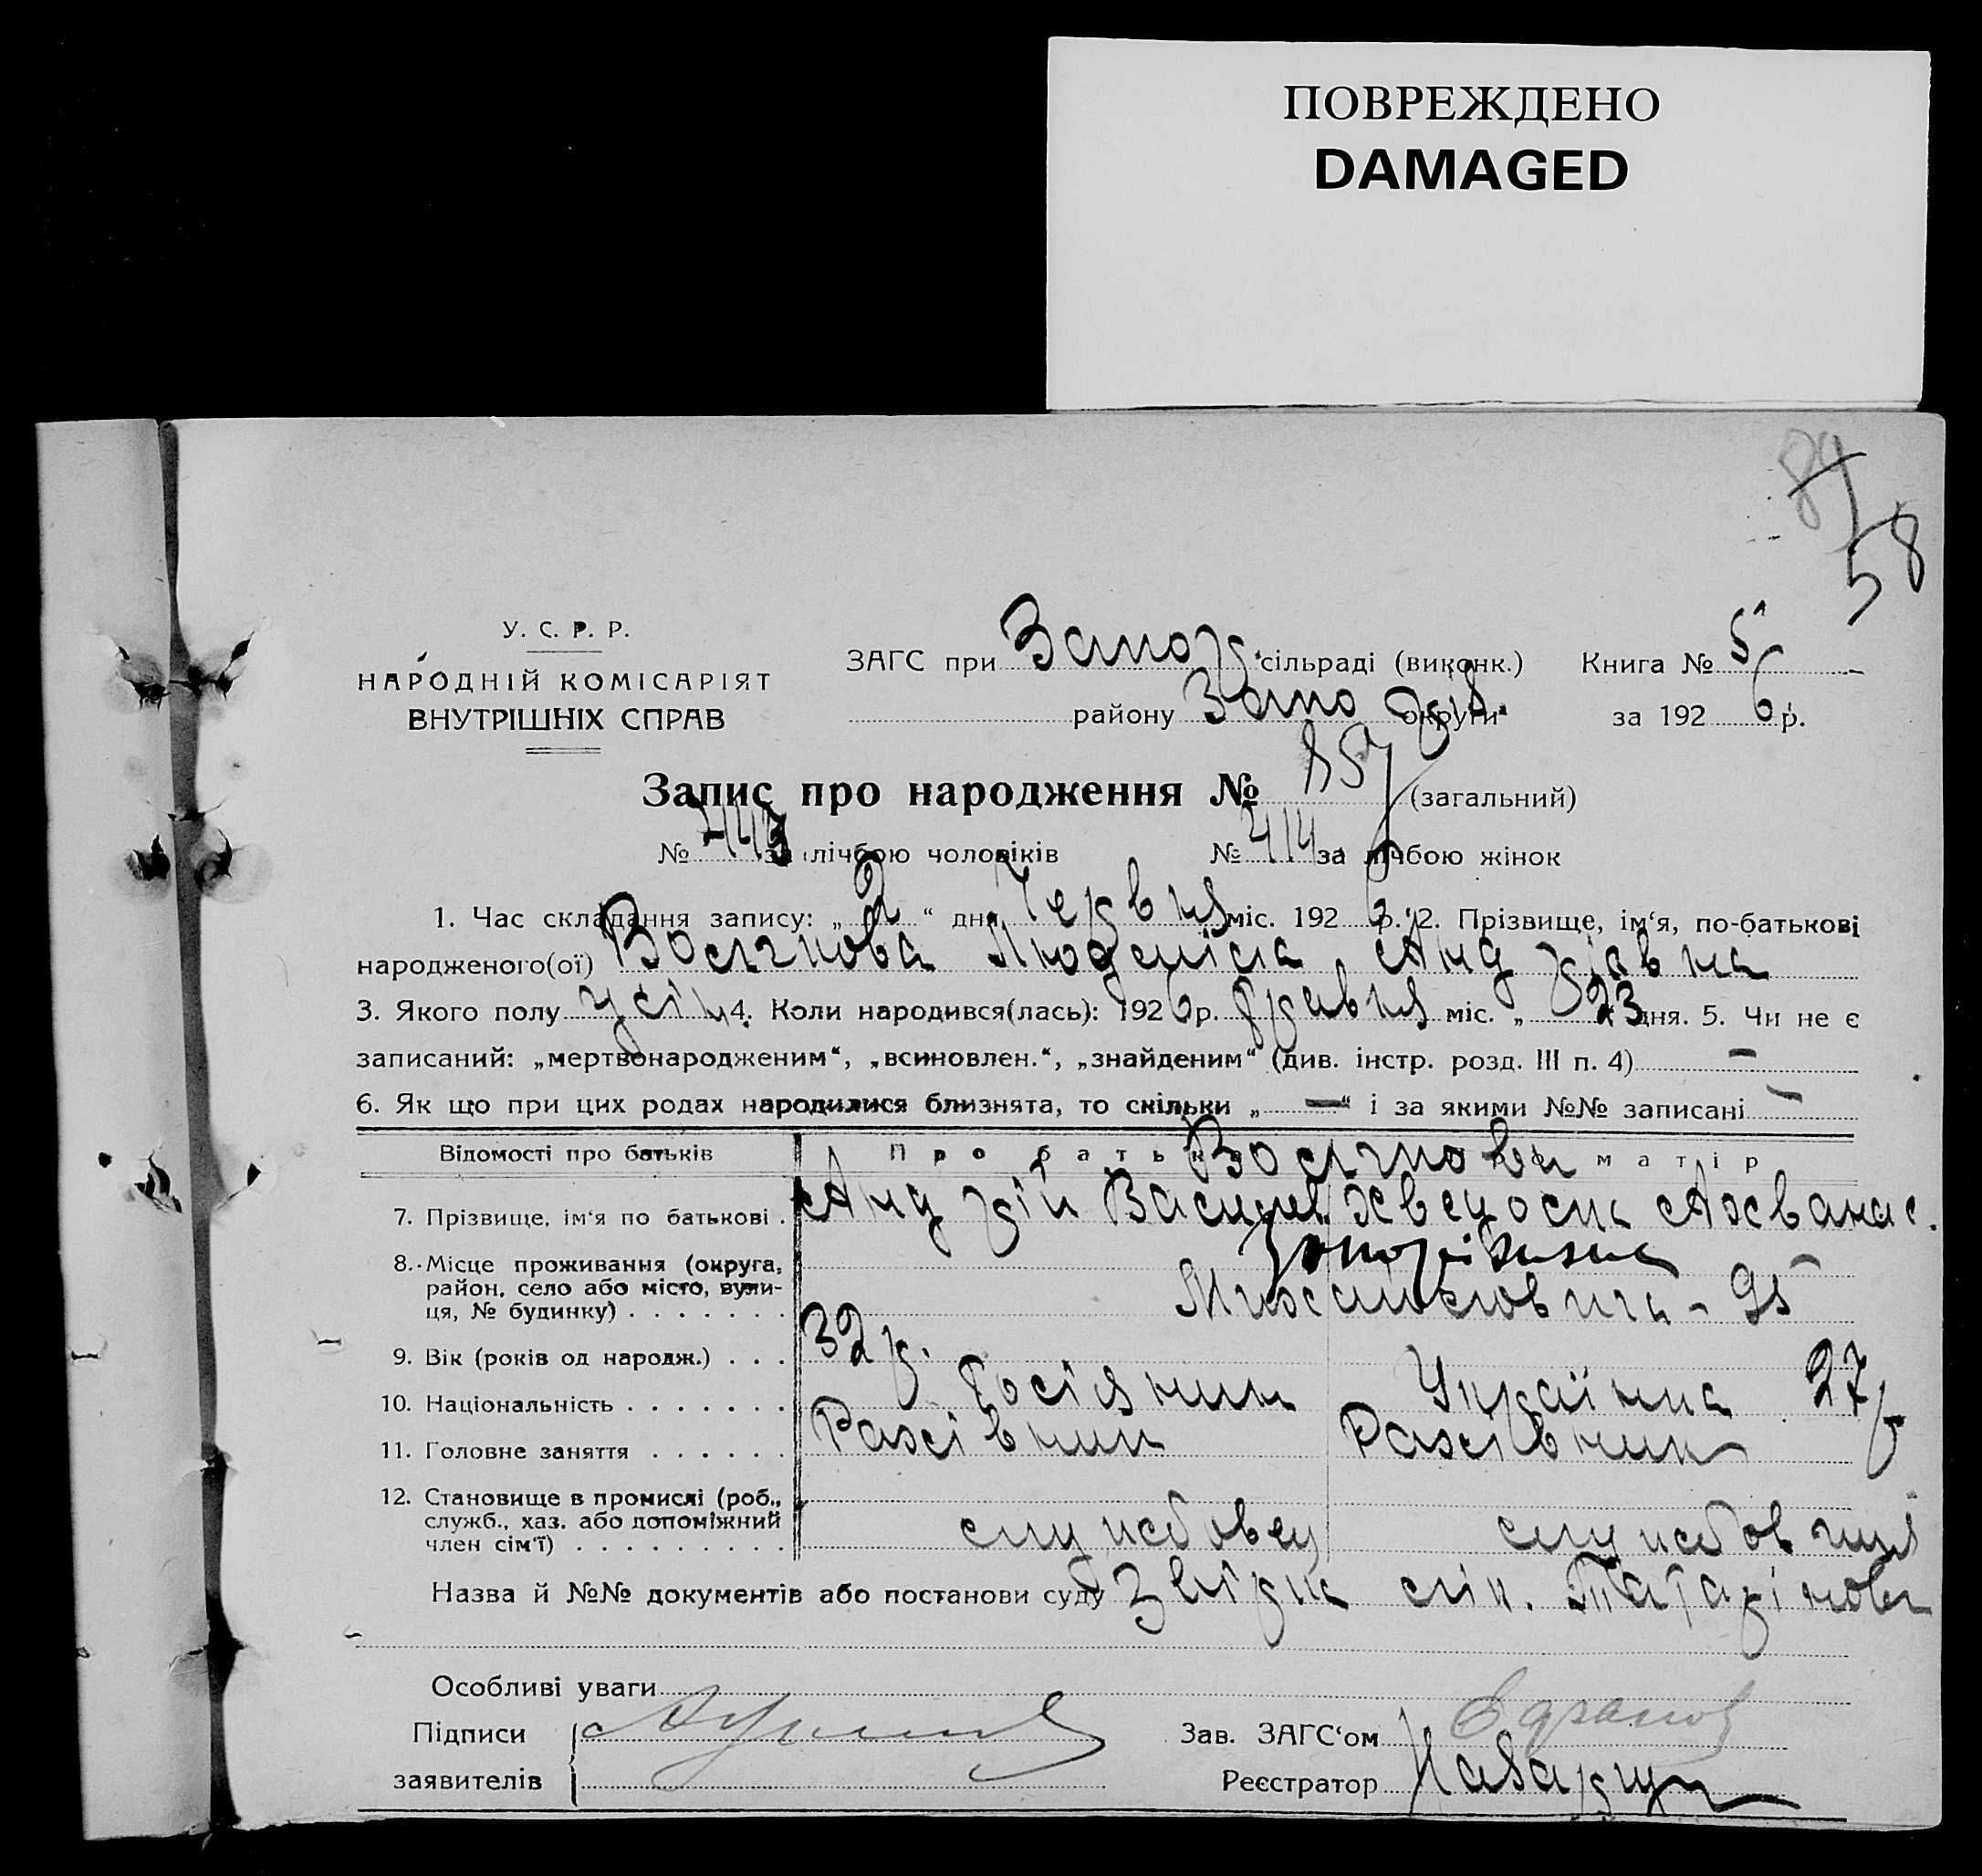 ПОВРЕЖДЕНО
DAMAGED
58
У. С. Р. Р.
НАРОДНІЙ КОМІСАРІЯТ
ВНУТРІШНІХ СПРАВ
ЗАГС при Запор. сільраді (виконк.) Книга № 5
району Запор округи за 192 6 р.
Запис про народження № 857 (загальний)
№ 443 за лічбою чоловіків № 414 за лічбою жінок
1. Час складання запису: „ 2 “ дня Червня міс. 192 6 р. 2. Прізвище, ім‘я, по-батькові
народженого(ої) Людмила Андріївна
3. Якого полу 4. Коли народився(лась): 192 6 р. травня міс. „ 23 дня. 5. Чи не є
записаний: „мертвонародженим“, „всиновлен.“, „знайденим“ (див. інстр. розд. III п. 4) —
6. Як що при цих родах народилися близнята, то скільки „ — “ і за якими №№ записані —
Відомості про батьків Про батька Про матір
7. Прізвище, ім‘я по батькові . Андрій Васильов. Хведосія Ахванас.
8. Місце проживання (округа,
район, село або місто, вули-
ця, № будинку) . . . . . . .
Запоріжжя
Михайловича - 95
9. Вік (років од народж.) . . . 32 р. 27 р
10. Національність . . . . . . . Росіянин Українка
11. Головне заняття . . . . . . Рахівник Рахівник
12. Становище в промислі (роб.,
служб., хаз. або допоміжний
член сім‘ї) . . . . . . . . . службовец службовчиця
Назва й №№ документів або постанови суду
Особливі уваги
Підписи
заявителів
Зав. ЗАГС‘ом
Реєстратор